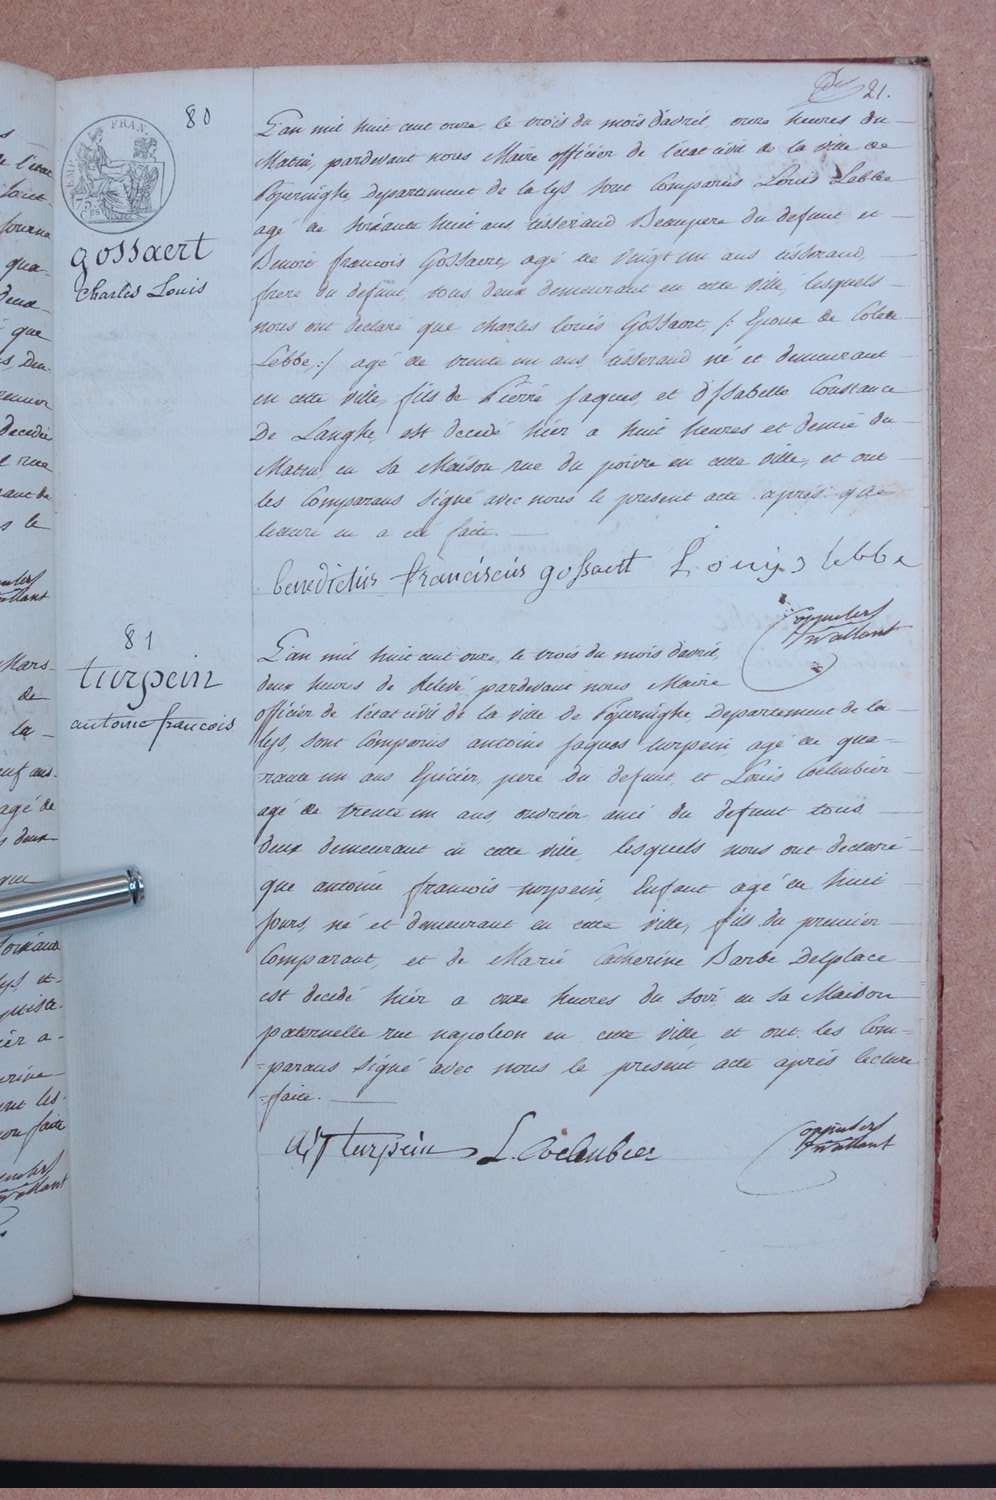 21.
80
FRAN.
gossaert
Charles Louis
L'an mil huit cent onze, le trois du mois d'avril onze heures du
Matin, pardevant nous Maire officier de l'état civil de la ville de
Poperinghe, departement de la lys sont Comparus Louis Lebbe
agé de soixante huit ans tisserand Beaupere du defunt et
Benoit francois Gossaert, agé de vingt un ans tisserand,
frere du defunt, tous deux demeurant en cette ville, lesquels
nous ont declaré que charles louis Gossaert, /: Epoux de Colette
Lebbe :/ agé de trente un ans, tisserand né et demeurant
en cette ville, fils de Pierre Jaques, et d'Isabelle Constance
De Langhe, est decedé hier a huit heures et demie du
Matin en sa Maison rue du poivre en cette ville, et ont
les Comparans signé avec nous le present acte après que
lecture en a été faite.
benedictus franciscus gossaert Louis lebbe
81
turpein
antoine francois
L'an mil huit cent onze, le trois du mois d'avril
deux heures de Relevé, pardevant nous Maire
officier de l'etat civil de la ville de Poperinghe, Departement de la
lys, sont Comparus antoine Jaques turpein, agé de qua-
rante un ans Epicier, pere du defunt, et Louis Coelenbier
agé de trente un ans, ouvrier ami du defunt tous
deux demeurant en cette ville, lesquels nous ont declaré
que antoine francois turpein, Enfant agé de huit
jours, né et demeurant en cette ville, fils du premier
Comparant, et de Marie Catherine Barbe Delplace
est decedé hier a onze heures du soir en sa Maison
paternelle rue napoleon en cette ville et ont les Com=
=parans signé avec nous le present acte après lecture
=faite.
A J turpein L. Coelenbier